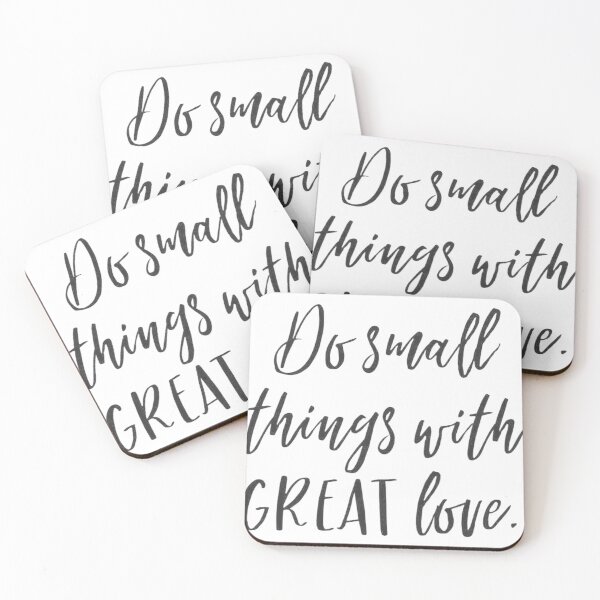 Do small
things with
Do small
things with
love.
Do small
things with
GREAT
Do small
things with
GREAT love.